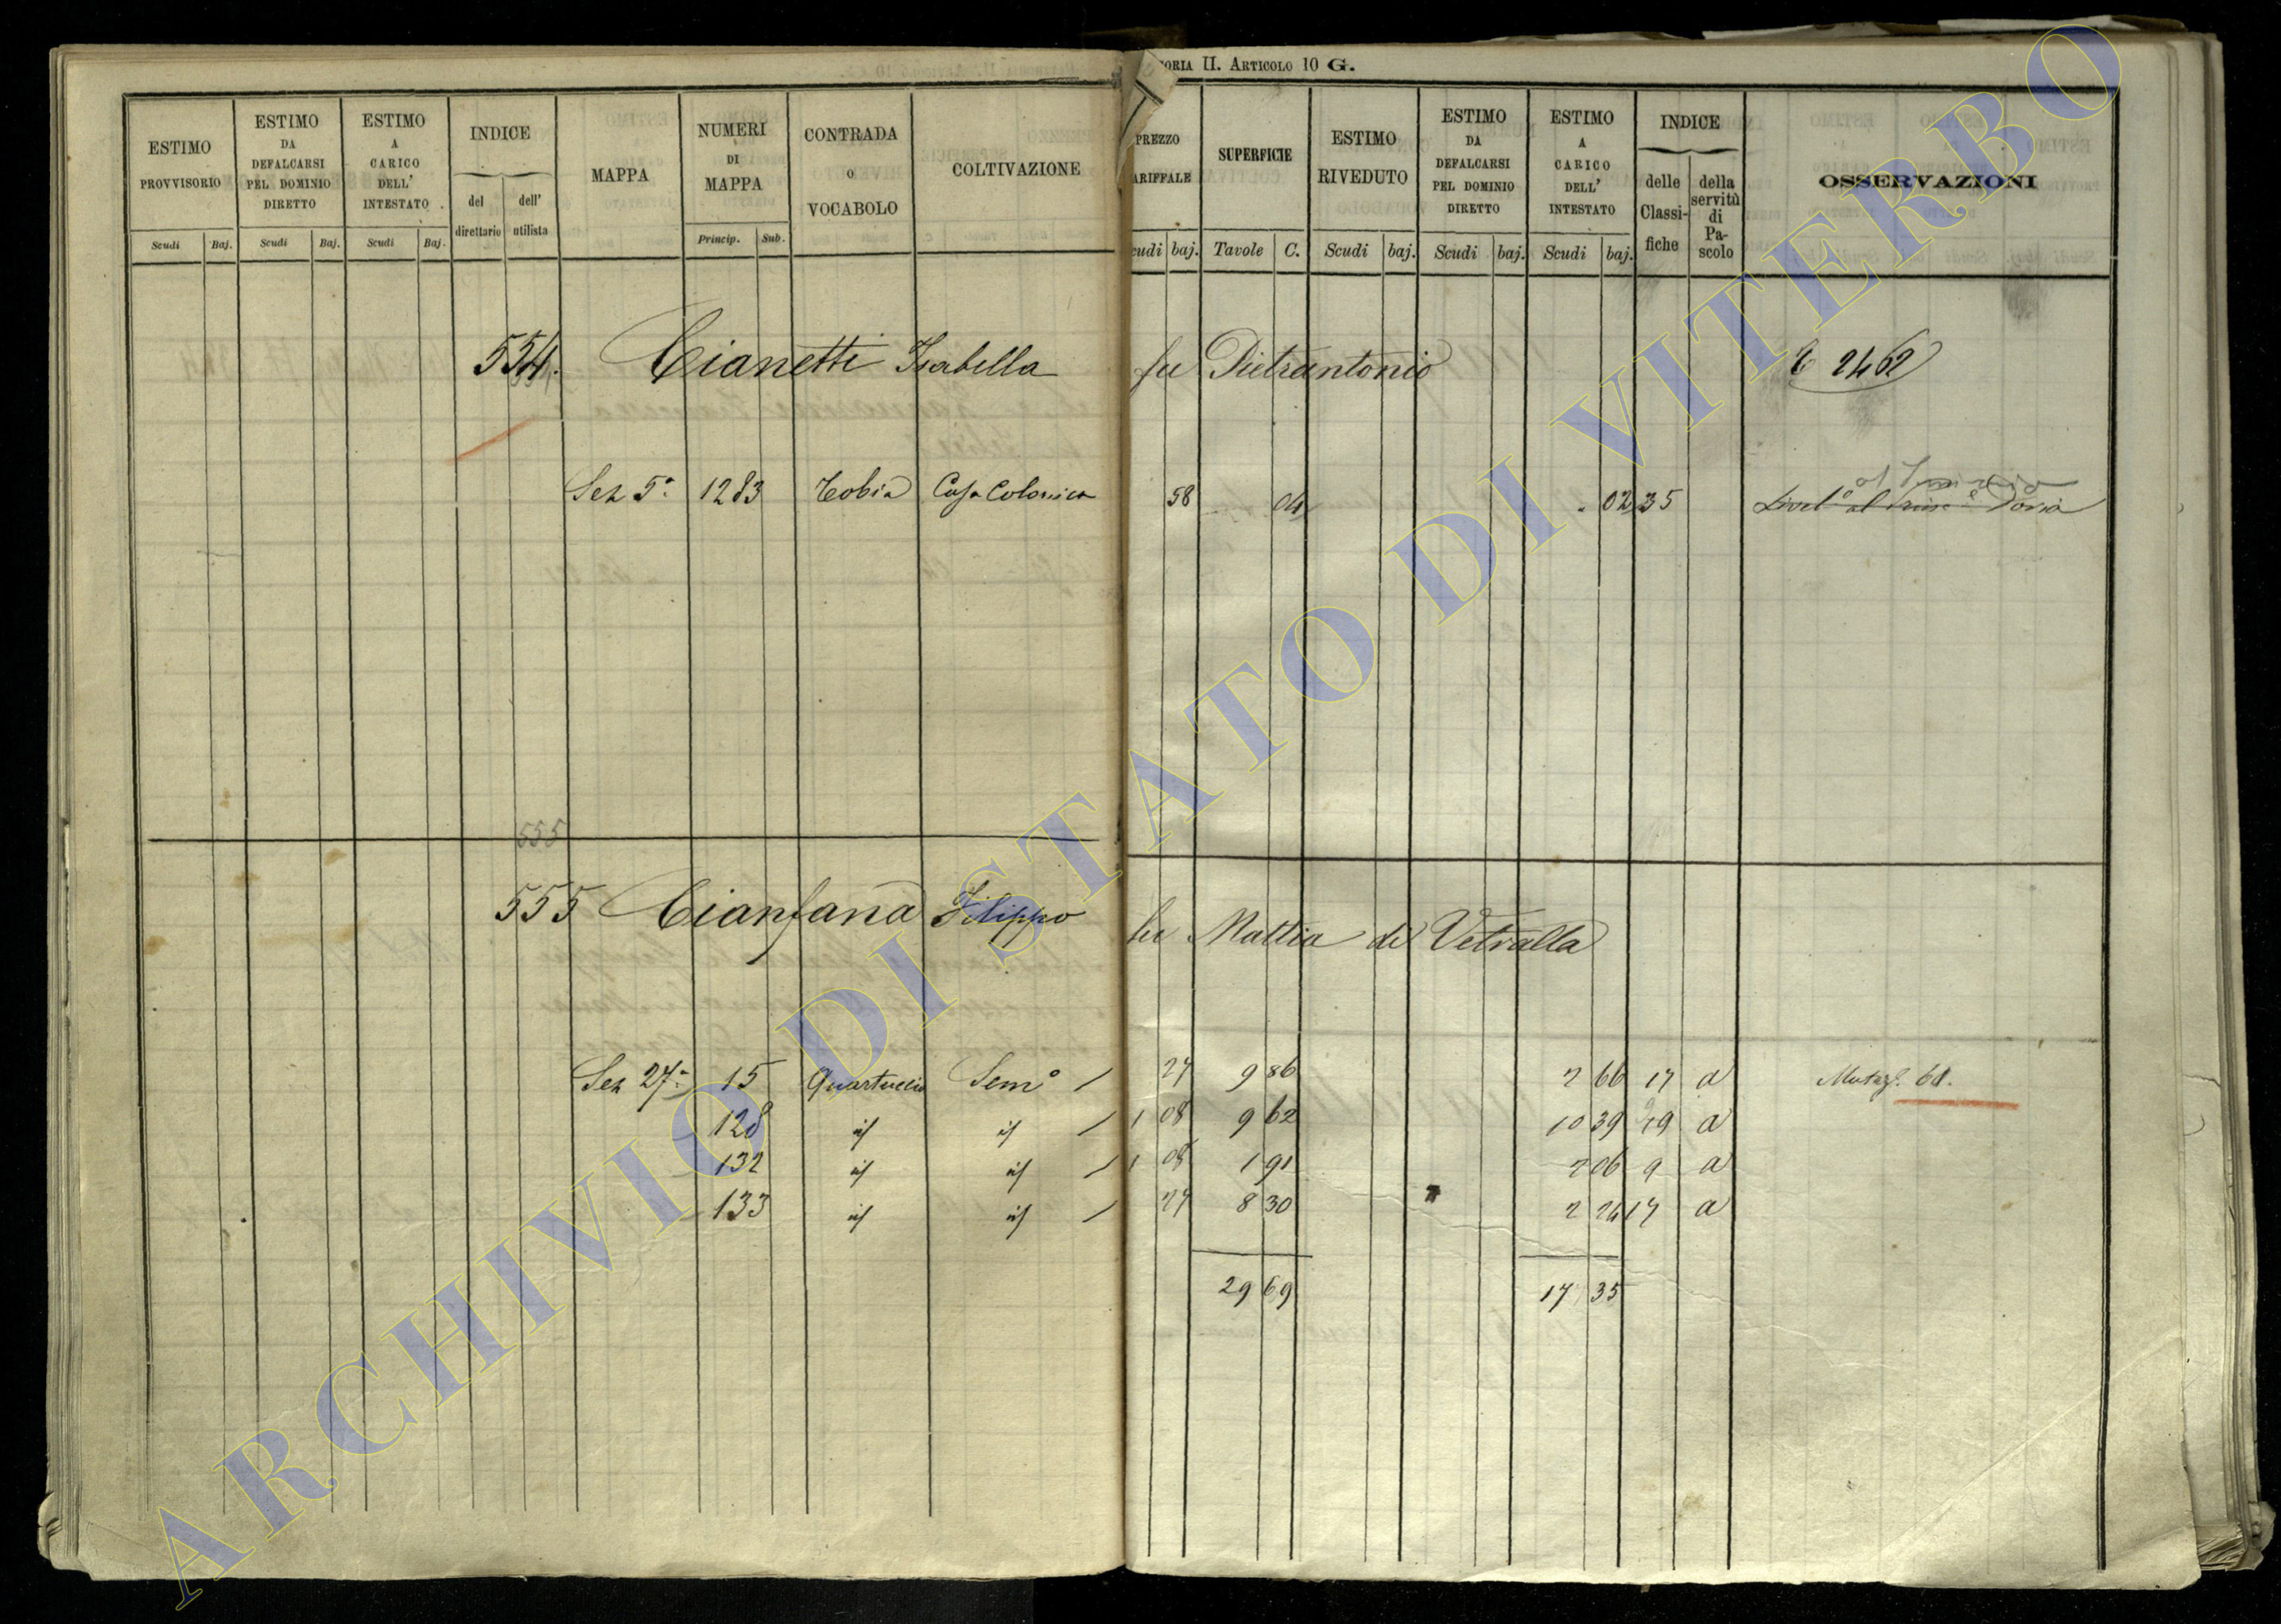 TORIA II. ARTICOLO 10 G.
ESTIMO PROVVISORIO
Scudi Baj.
ESTIMO DA DEFALCARSI PEL DOMINIO DIRETTO
Scudi Baj.
ESTIMO A CARICO DELL' INTESTATO
Scudi Baj.
INDICE
del direttario
dell' utilista
MAPPA
NUMERI DI MAPPA
Princip. Sub.
CONTRADA O VOCABOLO
COLTIVAZIONE
PREZZO ARIFFALE
cudi baj.
SUPERFICIE
Tavole C.
ESTIMO RIVEDUTO
Scudi baj.
ESTIMO DA DEFALCARSI PEL DOMINIO DIRETTO
Scudi baj.
ESTIMO A CARICO DELL' INTESTATO
Scudi baj.
INDICE
delle Classi-fiche
della servitù di Pa-scolo
OSSERVAZIONI
554. Cianetti Isabella fu Pietrantonio 2462
Sez 5ª 1283 Tobia Casa Colonica 58 04 02 35 Livelº al Doria
555
555 Cianfana Filippo fu Mattia di Vetralla
Sez 27ª 15 Quartuccio Semº / 27 9 86 2 66 17 a Mutazº. 61.
128 id id / 1 08 9 62 10 39 29 a
132 id id / 1 08 1 91 2 06 9 a
133 id id / 27 8 30 2 24 17 a
29 69 17 35
ARCHIVIO DI STATO DI VITERBO